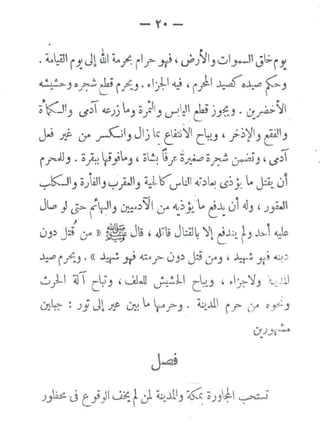 — ٢٠ —
يوم خلق السموات والأرض ، فهو حرام بحرمة الله إلى يوم القيامة .
وحكم صيده كصيد المحرم ، فيه الجزاء . ويحرم قطع شجره وحشيشه
الأخضرين . ويجوز قطع اليابس والثمرة وما زرعه آدمى والكمأة
والفقع والإذخر ، ويباح الانتفاع بما زال وانكسر من غير فعل
آدمى ، وتضمن شجرة صغيرة عرفا بشاة ، وما فوقها ببقرة . وللمحرم
أن يقتل ما يؤذى بعادته الناس كالحية والعقرب والفأرة والكلب
العقور ، وله أن يدفع ما يؤذيه من الآدميين والبهائم حتى لو صال
عليه أحد ولم يندفع إلا بالقتال قاتله ، قال ﷺ « من قتل دون
دينه فهو شهيد ، ومن قتل دون حرمته فهو شهيد » . ويحرم صيد
المدينة ولا جزاء ، ويباح الحشيش للعلف ، وتباح آلة الحرث
ونحوه من حرم المدينة . وحرمها ما بين عير إلى ثور : جبلين
مشهورين
فصل
تستحب المجاورة بمكة والمدينة لمن لم يخف الوقوع فى محظور